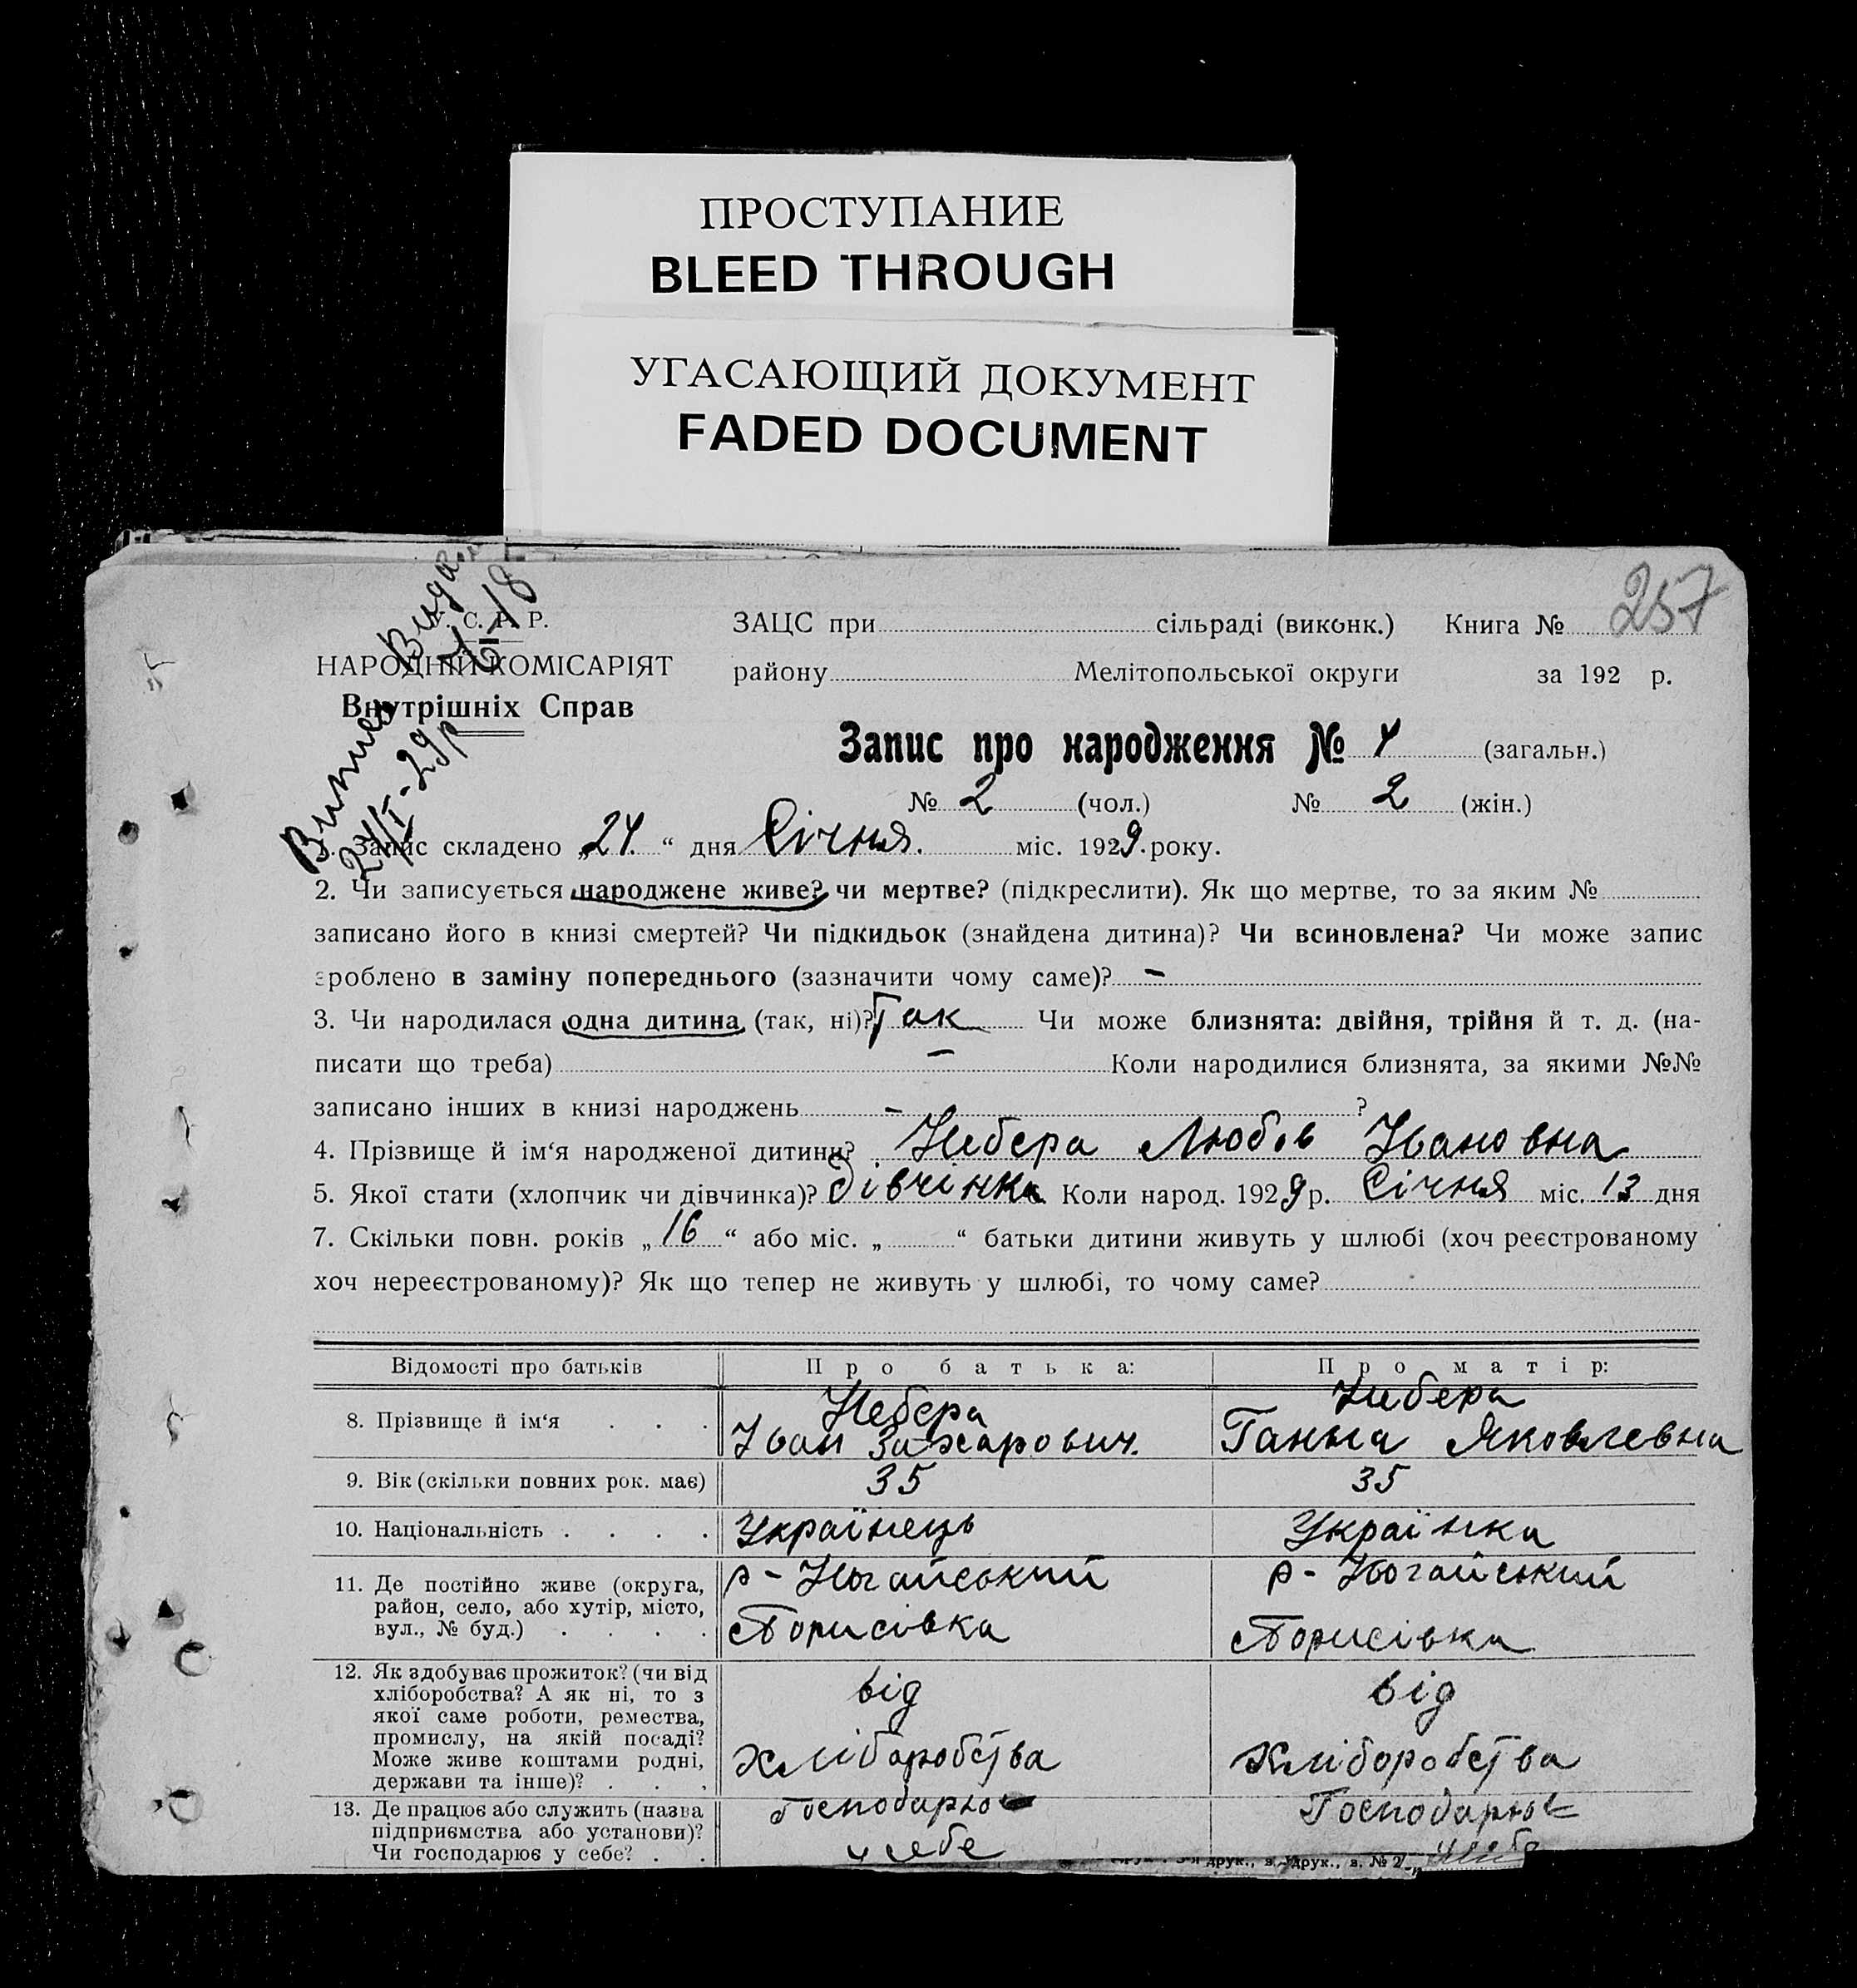 ПРОСТУПАНИЕ
BLEED THROUGH
УГАСАЮЩИЙ ДОКУМЕНТ
FADED DOCUMENT
257
У. С. Р. Р.
НАРОДНІЙ КОМІСАРІЯТ
Внутрішніх Справ
ЗАЦС при сільраді (виконк.) Книга №
району Мелітопольської округи за 192 р.
Запис про народження № 4 (загальн.)
№ 2 (чол.) № 2 (жін.)
24/I-29р
1. Запис складено „24“ дня Січня. міс. 1929 року.
2. Чи записується народжене живе? чи мертве? (підкреслити). Як що мертве, то за яким №
записано його в книзі смертей? Чи підкидьок (знайдена дитина)? Чи всиновлена? Чи може запис
зроблено в заміну попереднього (зазначити чому саме)? –
3. Чи народилася одна дитина (так, ні)? Так Чи може близнята: двійня, трійня й т. д. (на-
писати що треба) – Коли народилися близнята, за якими №№
записано інших в книзі народжень – ?
4. Прізвище й ім‘я народженої дитини? Небера Любов Івановна
5. Якої стати (хлопчик чи дівчинка)? Дівчінка Коли народ. 1929 р. Січня міс. 13 дня
7. Скільки повн. років „16“ або міс. „ “ батьки дитини живуть у шлюбі (хоч реєстрованому
хоч нереєстрованому)? Як що тепер не живуть у шлюбі, то чому саме?
Відомості про батьків Про батька: Про матір:
8. Прізвище й ім‘я . . . Небера Іван Захарович. Небера Ганна Яковлевна
9. Вік (скільки повних рок. має) 35 35
10. Національність . . . . Українець Українка
11. Де постійно живе (округа,
район, село, або хутір, місто,
вул., № буд.) . . . .
р-Ногайський
Борисівка
р-Ногайський
Борисівка
12. Як здобуває прожиток? (чи від
хліборобства? А як ні, то з
якої саме роботи, ремества,
промислу, на якій посаді?
Може живе коштами родні,
держави та інше)? . . .
від
хліборобства
від
хліборобства
13. Де працює або служить (назва
підприємства або установи)?
Чи господарює у себе? . .
Господарює
у себе
Господарює
у себе